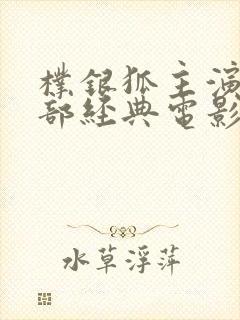 樸銀狐主演
部經典電影
水草浮萍